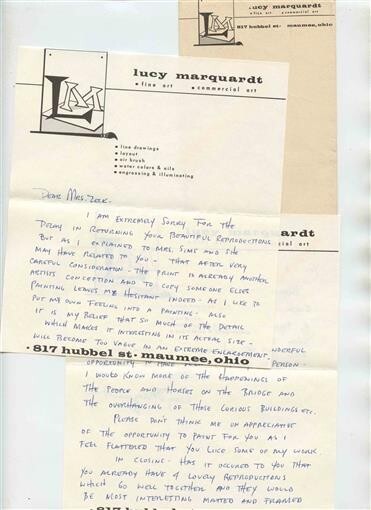 lucy marquardt
fine art • commercial art
817 hubbel st• maumee, ohio
LM
lucy marquardt
• fine art • commercial art
• line drawings
• layout
• air brush
• water colors & oils
• engrossing & illuminating
Dear Mrs.
I am extremely sorry for the
delay in returning your beautiful reproductions
But as I explained to Mrs. Sims and she
may have related to you - that after very
careful consideration - the print is already another
artists conception and to copy someone elses
painting leaves me hesitant indeed - as I like to
put my own feeling into a painting. Also
it is my belief that so much of the detail
which makes it interesting in its actual size -
will become too vague in an extreme enlargement.
•817 hubbel st• maumee, ohio
ardt
cial art
nderful
opportunity
person -
I would know more of the happenings of
the people and horses on the bridge and
the overhanging of those curious buildings etc.
Please don't think me un appreciative
of the opportunity to paint for you as I
feel flattered that you like some of my work
In closing - has it occured to you that
you already have 4 lovely reproductions
which go well together and they would
be most interesting matted and framed
•817 hubbel st• maumee, ohio